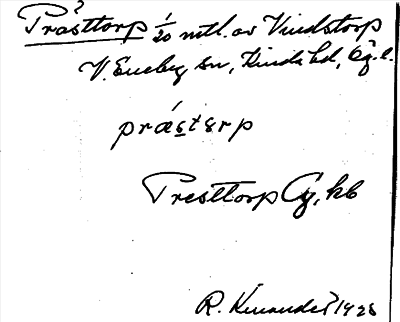 Prästtorp 1/20 mtl. av Vindstorp
V. Eneby sn, Kinda hd, Ög. l.
prǽstɛrp
Presttorp Cg, kb
R. Kinander 1928